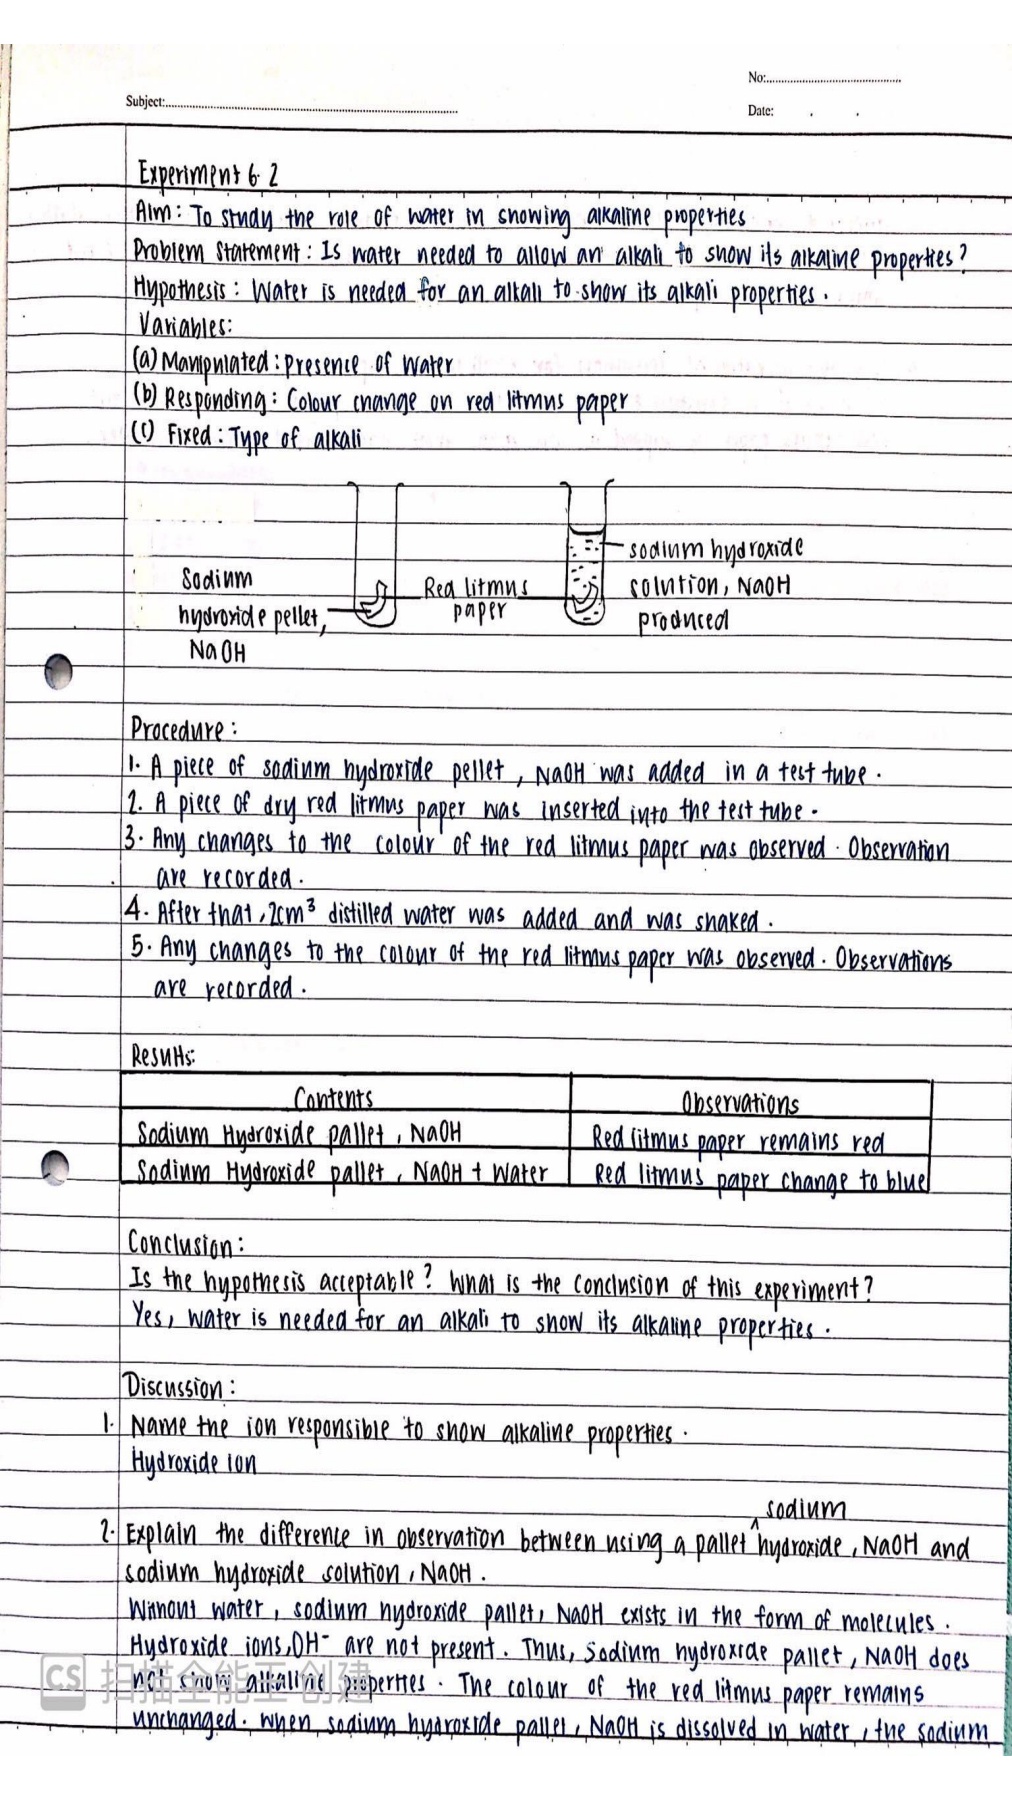 No:
Subject:
Date:
Experiment 6.2
Aim : To study the role of water in showing alkaline properties
Problem Statement : Is water needed to allow an alkali to show its alkaline properties?
Hypothesis : Water is needed for an alkali to show its alkali properties.
Variables:
(a) Manipulated : Presence of Water
(b) Responding : Colour change on red litmus paper
(c) Fixed : Type of alkali
Sodium
hydroxide pellet,
NaOH
Red litmus
paper
sodium hydroxide
solution, NaOH
produced
Procedure :
1. A piece of sodium hydroxide pellet, NaOH was added in a test tube.
2. A piece of dry red litmus paper was inserted into the test tube.
3. Any changes to the colour of the red litmus paper was observed. Observation
are recorded.
4. After that, 2cm³ distilled water was added and was shaked.
5. Any changes to the colour of the red litmus paper was observed. Observations
are recorded.
Results:
Contents Observations
Sodium Hydroxide pallet, NaOH Red litmus paper remains red
Sodium Hydroxide pallet, NaOH + Water Red litmus paper change to blue
Conclusion :
Is the hypothesis acceptable? What is the conclusion of this experiment?
Yes, water is needed for an alkali to show its alkaline properties.
Discussion :
1. Name the ion responsible to show alkaline properties.
Hydroxide ion
sodium
2. Explain the difference in observation between using a pallet ^ hydroxide, NaOH and
sodium hydroxide solution, NaOH.
Without water, sodium hydroxide pallet, NaOH exists in the form of molecules.
Hydroxide ions, OH⁻ are not present. Thus, sodium hydroxide pallet, NaOH does
not show alkaline properties. The colour of the red litmus paper remains
unchanged. When sodium hydroxide pallet, NaOH is dissolved in water, the sodium
CS 扫描全能王 创建